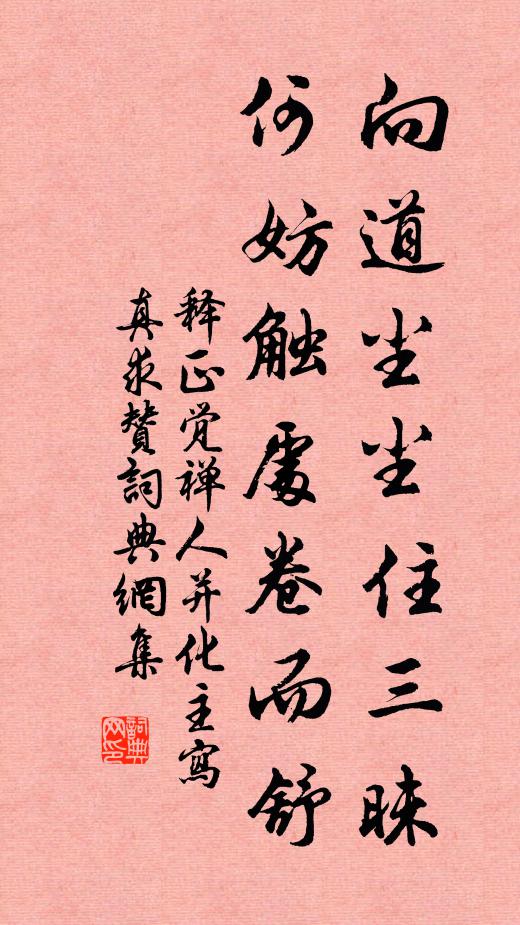 向道尘尘住三昧
何妨触處卷而舒
释正觉禅人并化主寫
真求賛詞典網集
詞典
网印